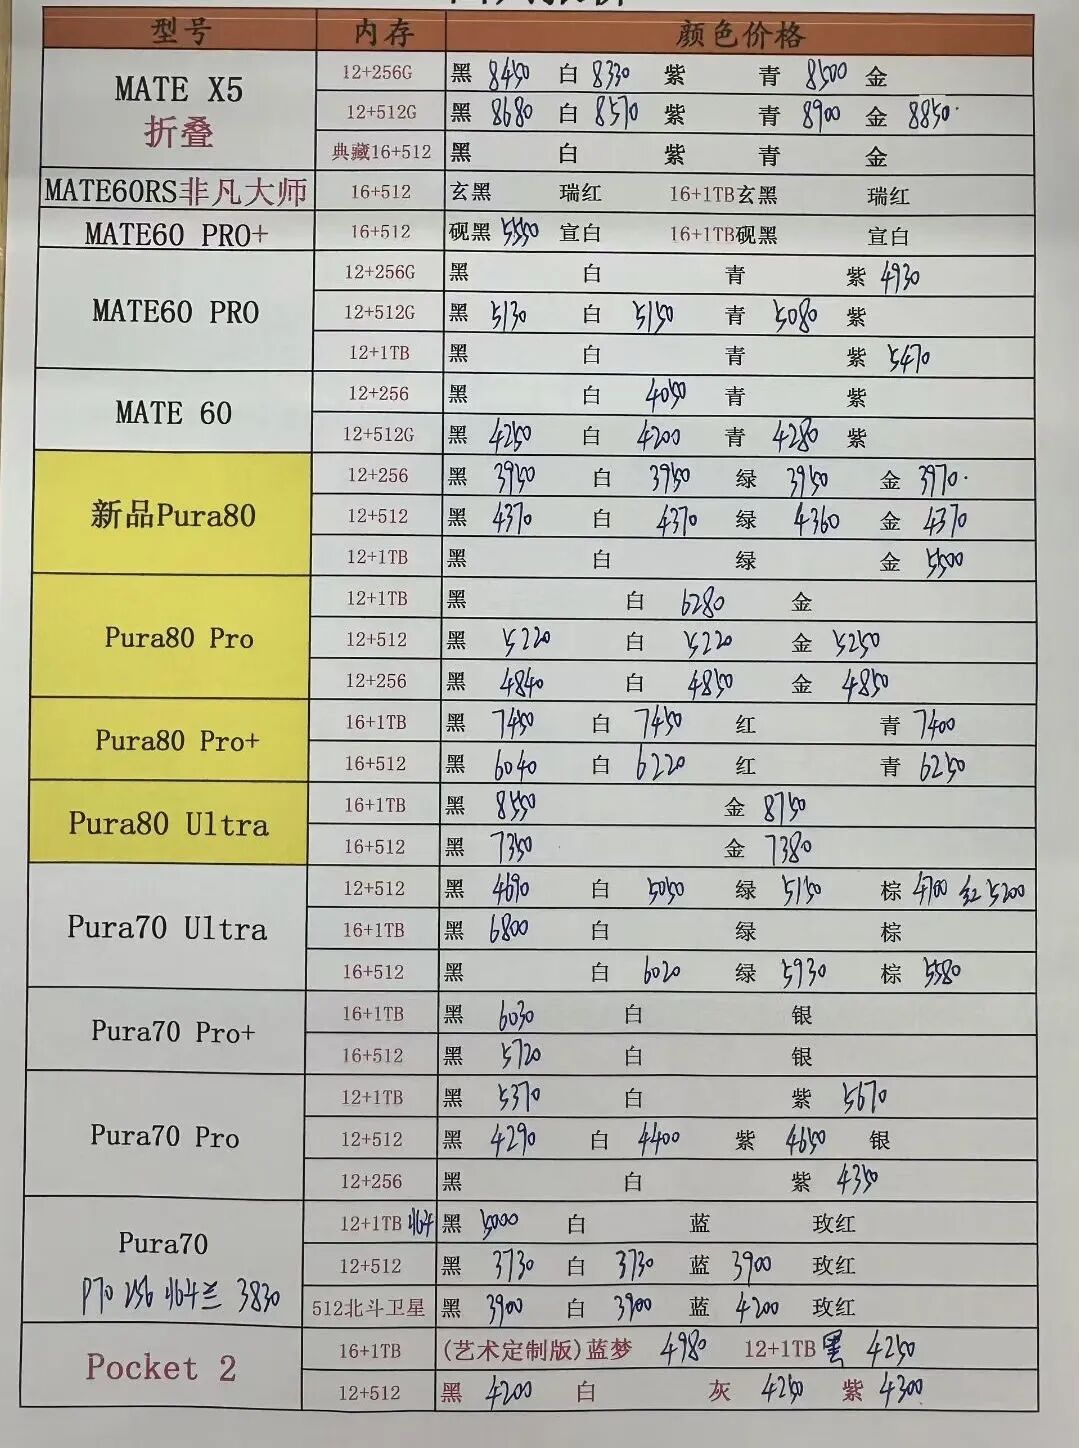 型号 内存 颜色价格
MATE X5 折叠
12+256G 黑 8450 白 8330 紫 青 8500 金
12+512G 黑 8680 白 8570 紫 青 8900 金 8850
典藏16+512 黑 白 紫 青 金
MATE60RS非凡大师 16+512 玄黑 瑞红 16+1TB玄黑 瑞红
MATE60 PRO+ 16+512 砚黑 5550 宣白 16+1TB砚黑 宣白
MATE60 PRO
12+256G 黑 白 青 紫 4930
12+512G 黑 5130 白 5150 青 5080 紫
12+1TB 黑 白 青 紫 5470
MATE 60
12+256 黑 白 4050 青 紫
12+512G 黑 4250 白 4200 青 4280 紫
新品Pura80
12+256 黑 3950 白 3950 绿 3950 金 3970
12+512 黑 4370 白 4370 绿 4360 金 4370
12+1TB 黑 白 绿 金 5500
Pura80 Pro
12+1TB 黑 白 6280 金
12+512 黑 5220 白 5220 金 5250
12+256 黑 4840 白 4850 金 4850
Pura80 Pro+
16+1TB 黑 7450 白 7450 红 青 7400
16+512 黑 6040 白 6220 红 青 6250
Pura80 Ultra
16+1TB 黑 8550 金 8750
16+512 黑 7350 金 7380
Pura70 Ultra
12+512 黑 4690 白 5050 绿 5150 棕 4700 红 5200
16+1TB 黑 6800 白 绿 棕
16+512 黑 白 6020 绿 5930 棕 5580
Pura70 Pro+
16+1TB 黑 6030 白 银
16+512 黑 5720 白 银
Pura70 Pro
12+1TB 黑 5370 白 紫 5670
12+512 黑 4290 白 4400 紫 4650 银
12+256 黑 白 紫 4350
Pura70
P70 256 3830
12+1TB 黑 5000 白 蓝 玫红
12+512 黑 3730 白 3730 蓝 3900 玫红
512北斗卫星 黑 3900 白 3900 蓝 4200 玫红
Pocket 2
16+1TB (艺术定制版)蓝梦 4980 12+1TB 黑 4250
12+512 黑 4200 白 灰 4250 紫 4300